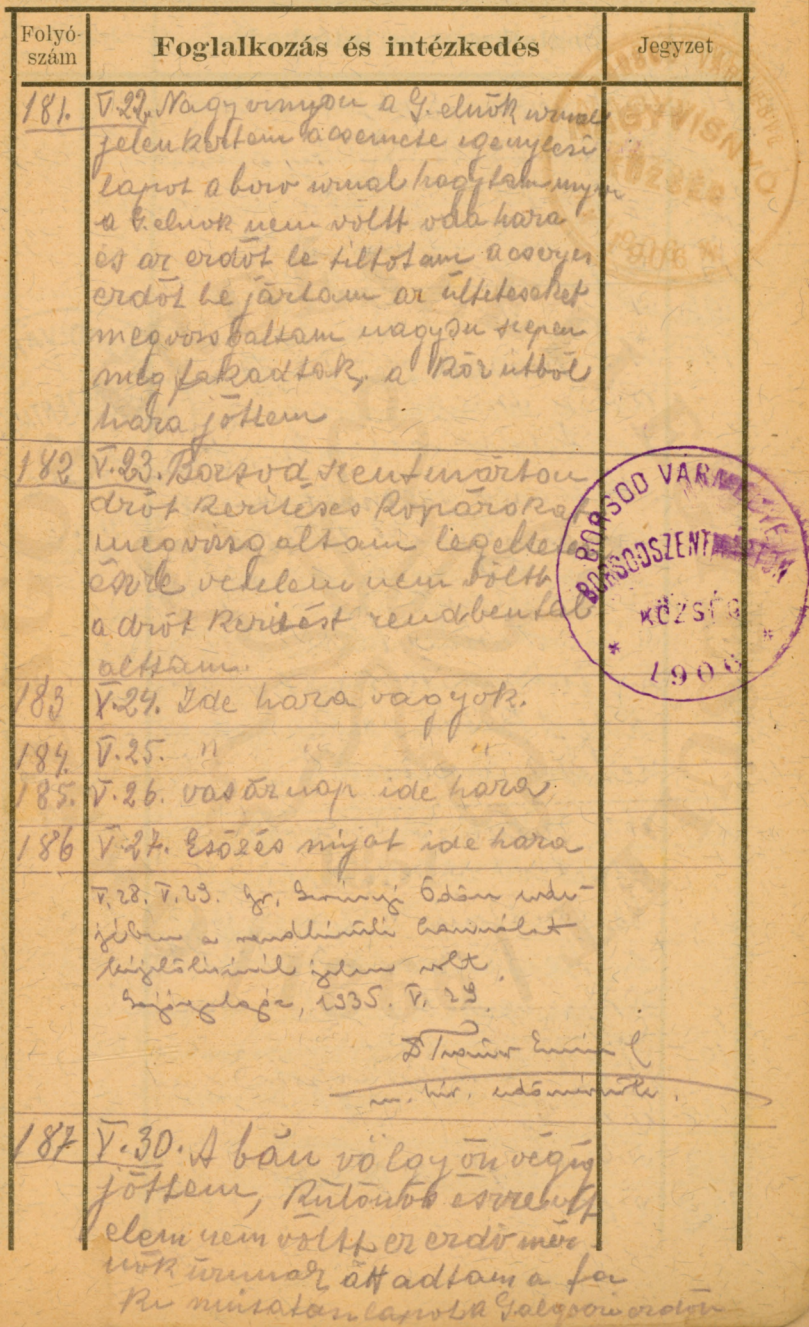 Folyó-
szám
Foglalkozás és intézkedés
Jegyzet
181. V.22. Nagyvisnyón a G. elnök urnál
jelenkeztem a csemete igenylesi
lapot a biró urnál hagytam
a G. elnök nem völtt oda hara
és az erdőt le tiltotam a
erdőt be jártam az ültetéseket
megvorsgaltam nagyon szepen
meg fakadtak, a Kör útból
hara jöttem
NAGYVISNYÓ
KÖZSÉG
1906
182 V.23. Borsod szentmárton
drót keritéses Kopárokat
megvizsgaltam
észre vetelem nem völtt
a drót Keritést rendbental
alttam.
BORSOD VÁRMEGYE
BORSODSZENTMÁRTON
KÖZSÉG
* 1906 *
183 V.24. Ide hara vagyok.
184. V.25. " " "
185. V.26. vasárnap ide hara
186 V.27. Esözés mijat ide hara
V.28. V.29. Gr. Ödön erdő-
jében a rendkívüli használat
kijelölésénél jelen volt.
1935. V. 29.
m. kir. erdőmérnök.
187 V.30. A bán völgyön végig
jöttem, Külonös észrevett
elem nem völtt er erdő mér
nök úrnnak átt adtam a fa
Ki mutatási lapot a erdőn